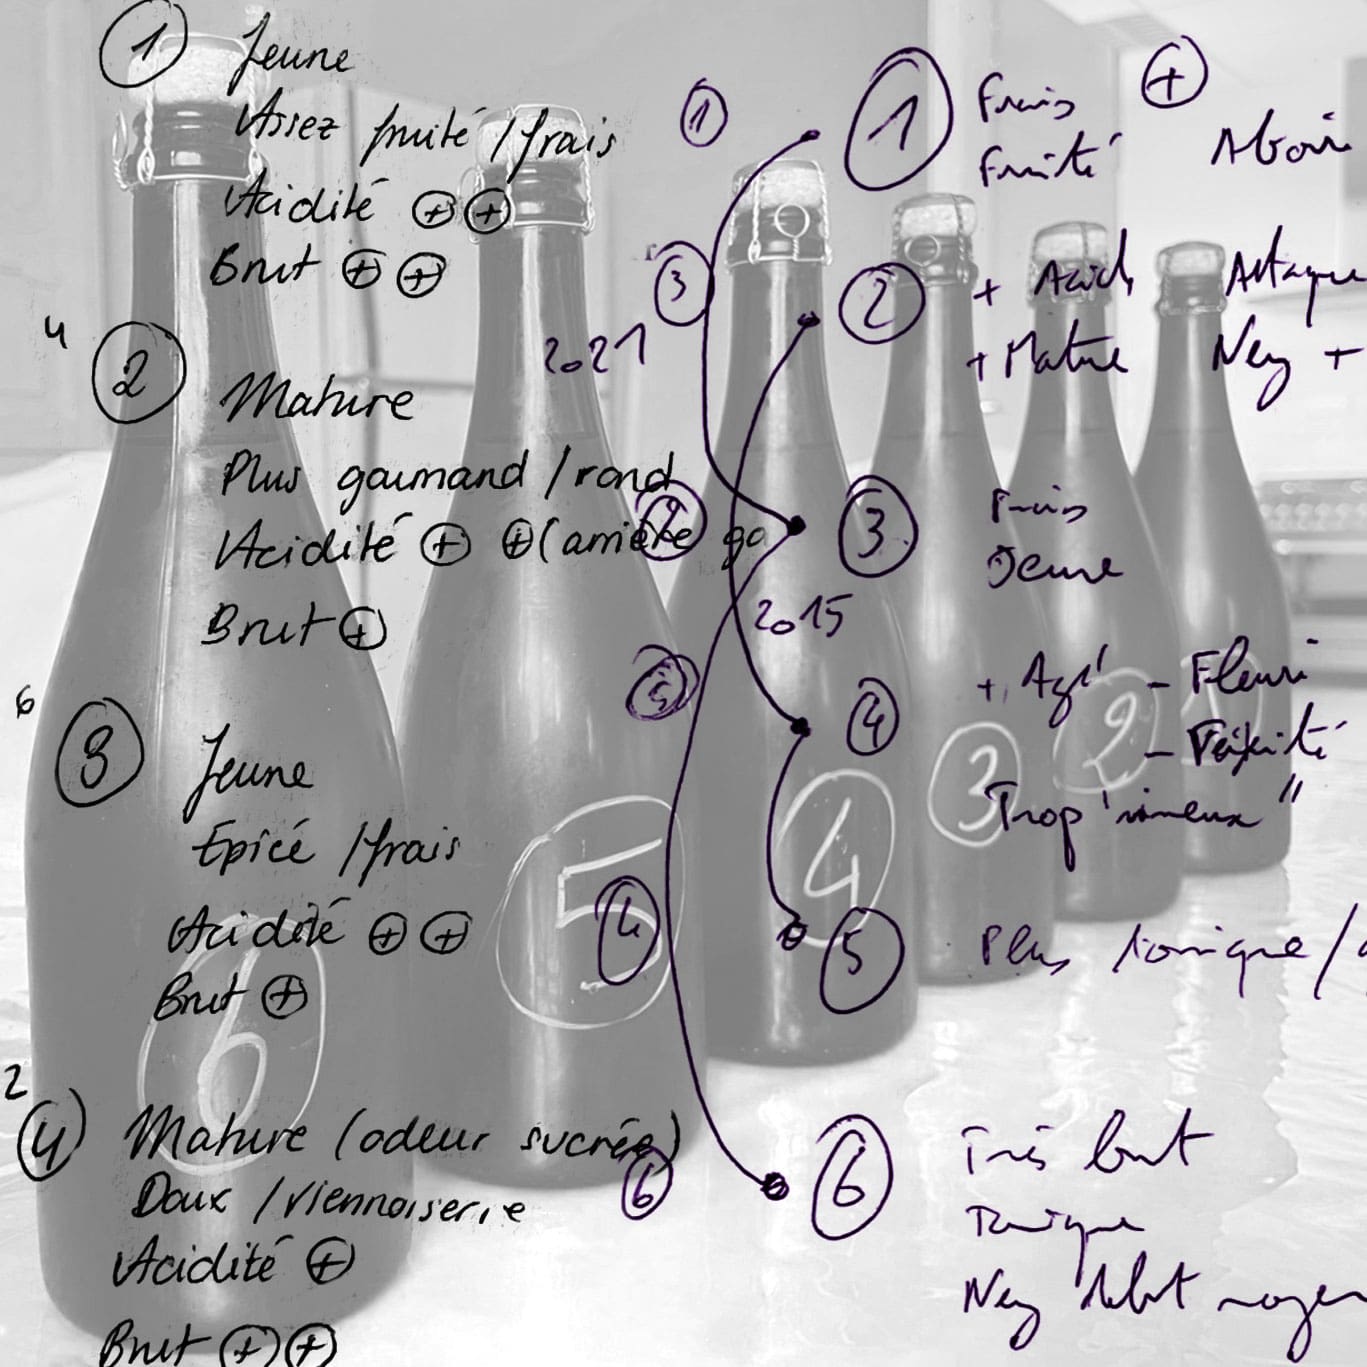 1 Jeune
Assez fruité / frais
Acidité + +
Brut + +
4
2 Mature
Plus gourmand / rond
Acidité + + (arrière go
Brut +
6
3 Jeune
Epicé / frais
Acidité + +
Brut +
2
4 Mature (odeur sucrée)
Doux / viennoiserie
Acidité +
Brut + +
1
3
2021
2
2015
5
4
6
1 Frais +
Fruité
2 + Acide Attaque
+ Mature Nez +
3 Frais
Jeune
4 + Agé - Fleuri
Trop "vineux"
5 Plus tonique /
6 Très brut
Tonique
Nez
6
5
4
3
2
1